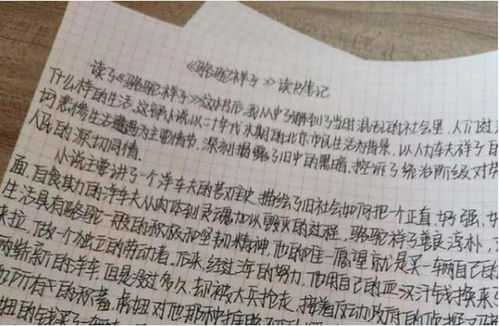 《骆驼祥子》读书笔记
读了《骆驼祥子》这本书后,我从中了解到了当时混乱的社会里,人们过
什么样的生活,这部小说以二十年代末期的北京市民生活为背景,以人力车夫祥子的
坷悲惨生活遭遇为主要情节,深刻揭露了旧中的黑暗,控诉了统治阶级对劳
人民的深切同情。
小说主要讲了一个洋车夫的苦难史,描绘了旧社会如何把一个正直、好强、
面、自食其力的洋车夫从肉体到灵魂加以毁灭的过程。骆驼祥子善良淳朴,
生活具有骆驼一般的积极和坚韧精神,他的唯一愿望就是买一辆自己的
来拉,做一个独立的劳动者,后来,经过三年的努力,他用自己的血汗钱换来
辆崭新的洋车,但是没过多久,却被大兵抢走,
所有的积蓄,虎妞对他那种
妞的钱买了一辆